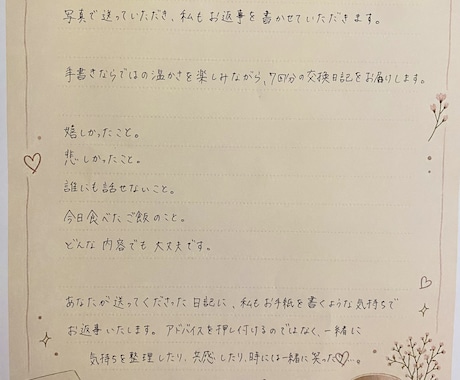 写真で送っていただき、私もお返事を書かせていただきます。
手書きならではの温かさを楽しみながら、7回分の交換日記をお届けします。
嬉しかったこと。
悲しかったこと。
誰にも話せないこと。
今日食べたご飯のこと。
どんな内容でも大丈夫です。
あなたが送ってくださった日記に、私もお手紙を書くような気持ちで
お返事いたします。アドバイスを押し付けるのではなく、一緒に
気持ちを整理したり、共感したり、時には一緒に笑った♡…。